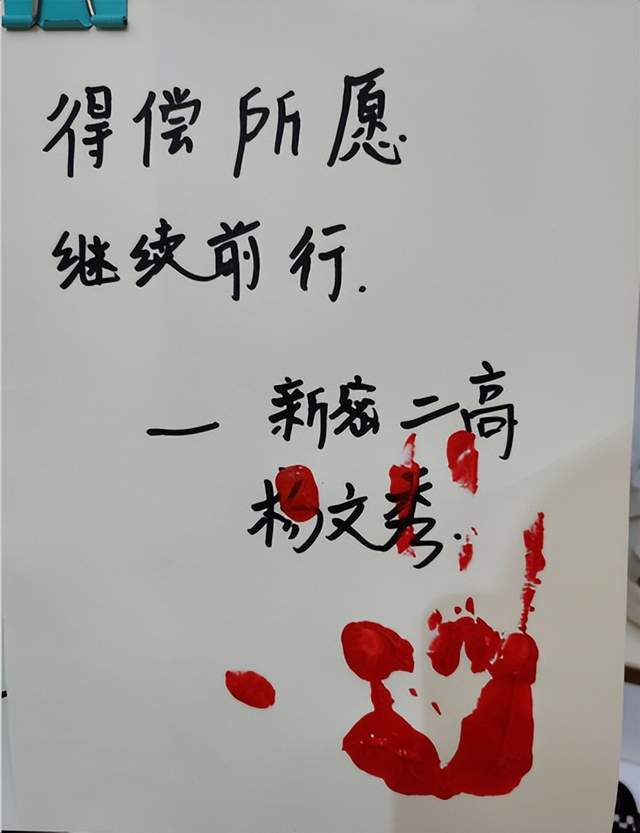 得偿所愿
继续前行.
— 新密二高
杨文秀.